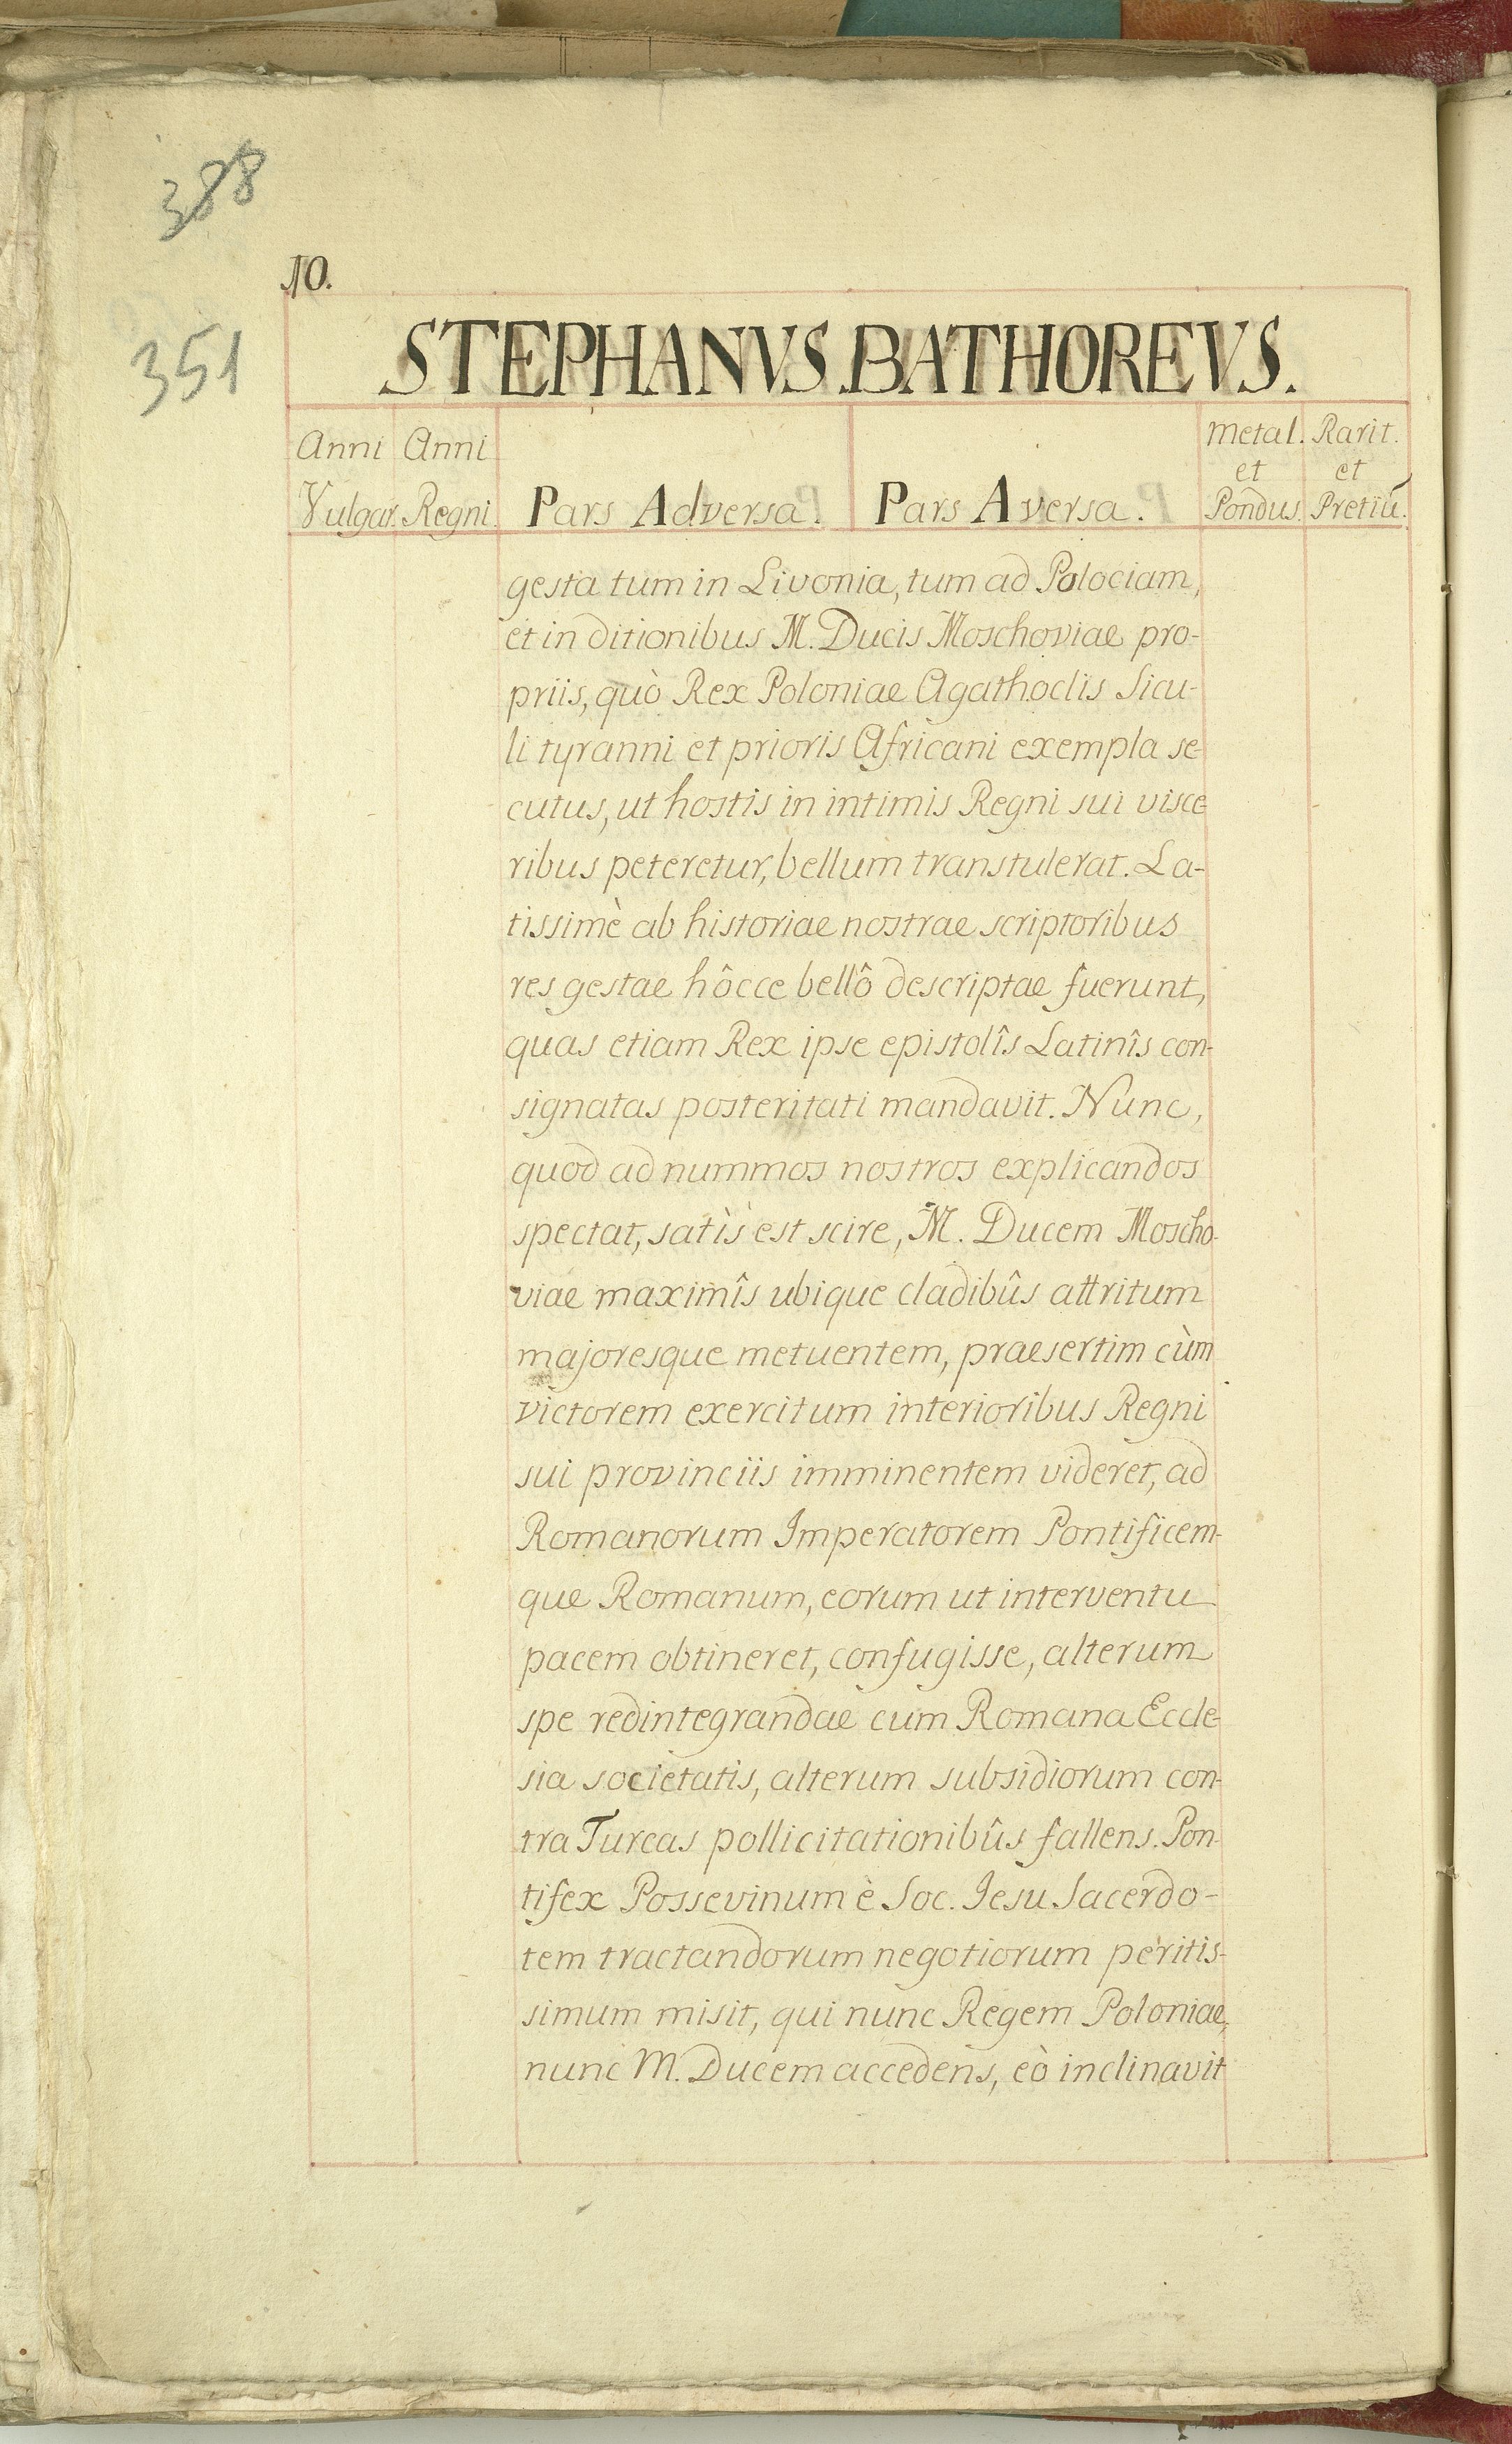 388
10.
351
STEPHANVS BATHOREVS.
Anni Vulgar.
Anni Regni.
Pars Adversa.
Pars Aversa.
Metal. et Pondus.
Rarit. et Pretiū.
gesta tum in Livonia, tum ad Polociam,
et in ditionibus M. Ducis Moschoviae pro-
priis, quò Rex Poloniae Agathoclis Sicu-
li tyranni et prioris Africani exempla se-
cutus, ut hostis in intimis Regni sui visce
ribus peteretur, bellum transtulerat. La-
tissimè ab historiae nostrae scriptoribus
res gestae hôcce bellô descriptae fuerunt,
quas etiam Rex ipse epistolîs Latinîs con-
signatas posteritati mandavit. Nunc,
quod ad nummos nostros explicandos
spectat, satis est scire, M. Ducem Moscho-
viae maximîs ubique cladibûs attritum
majoresque metuentem, praesertim cùm
victorem exercitum interioribus Regni
sui provinciis imminentem videret, ad
Romanorum Imperatorem Pontificem-
que Romanum, eorum ut interventu
pacem obtineret, confugisse, alterum
spe redintegrandae cum Romana Eccle-
sia societatis, alterum subsidiorum con-
tra Turcas pollicitationibûs fallens. Pon-
tifex Possevinum è Soc. Iesu Sacerdo-
tem tractandorum negotiorum peritis-
simum misit, qui nunc Regem Poloniae,
nunc M. Ducem accedens, eò inclinavit